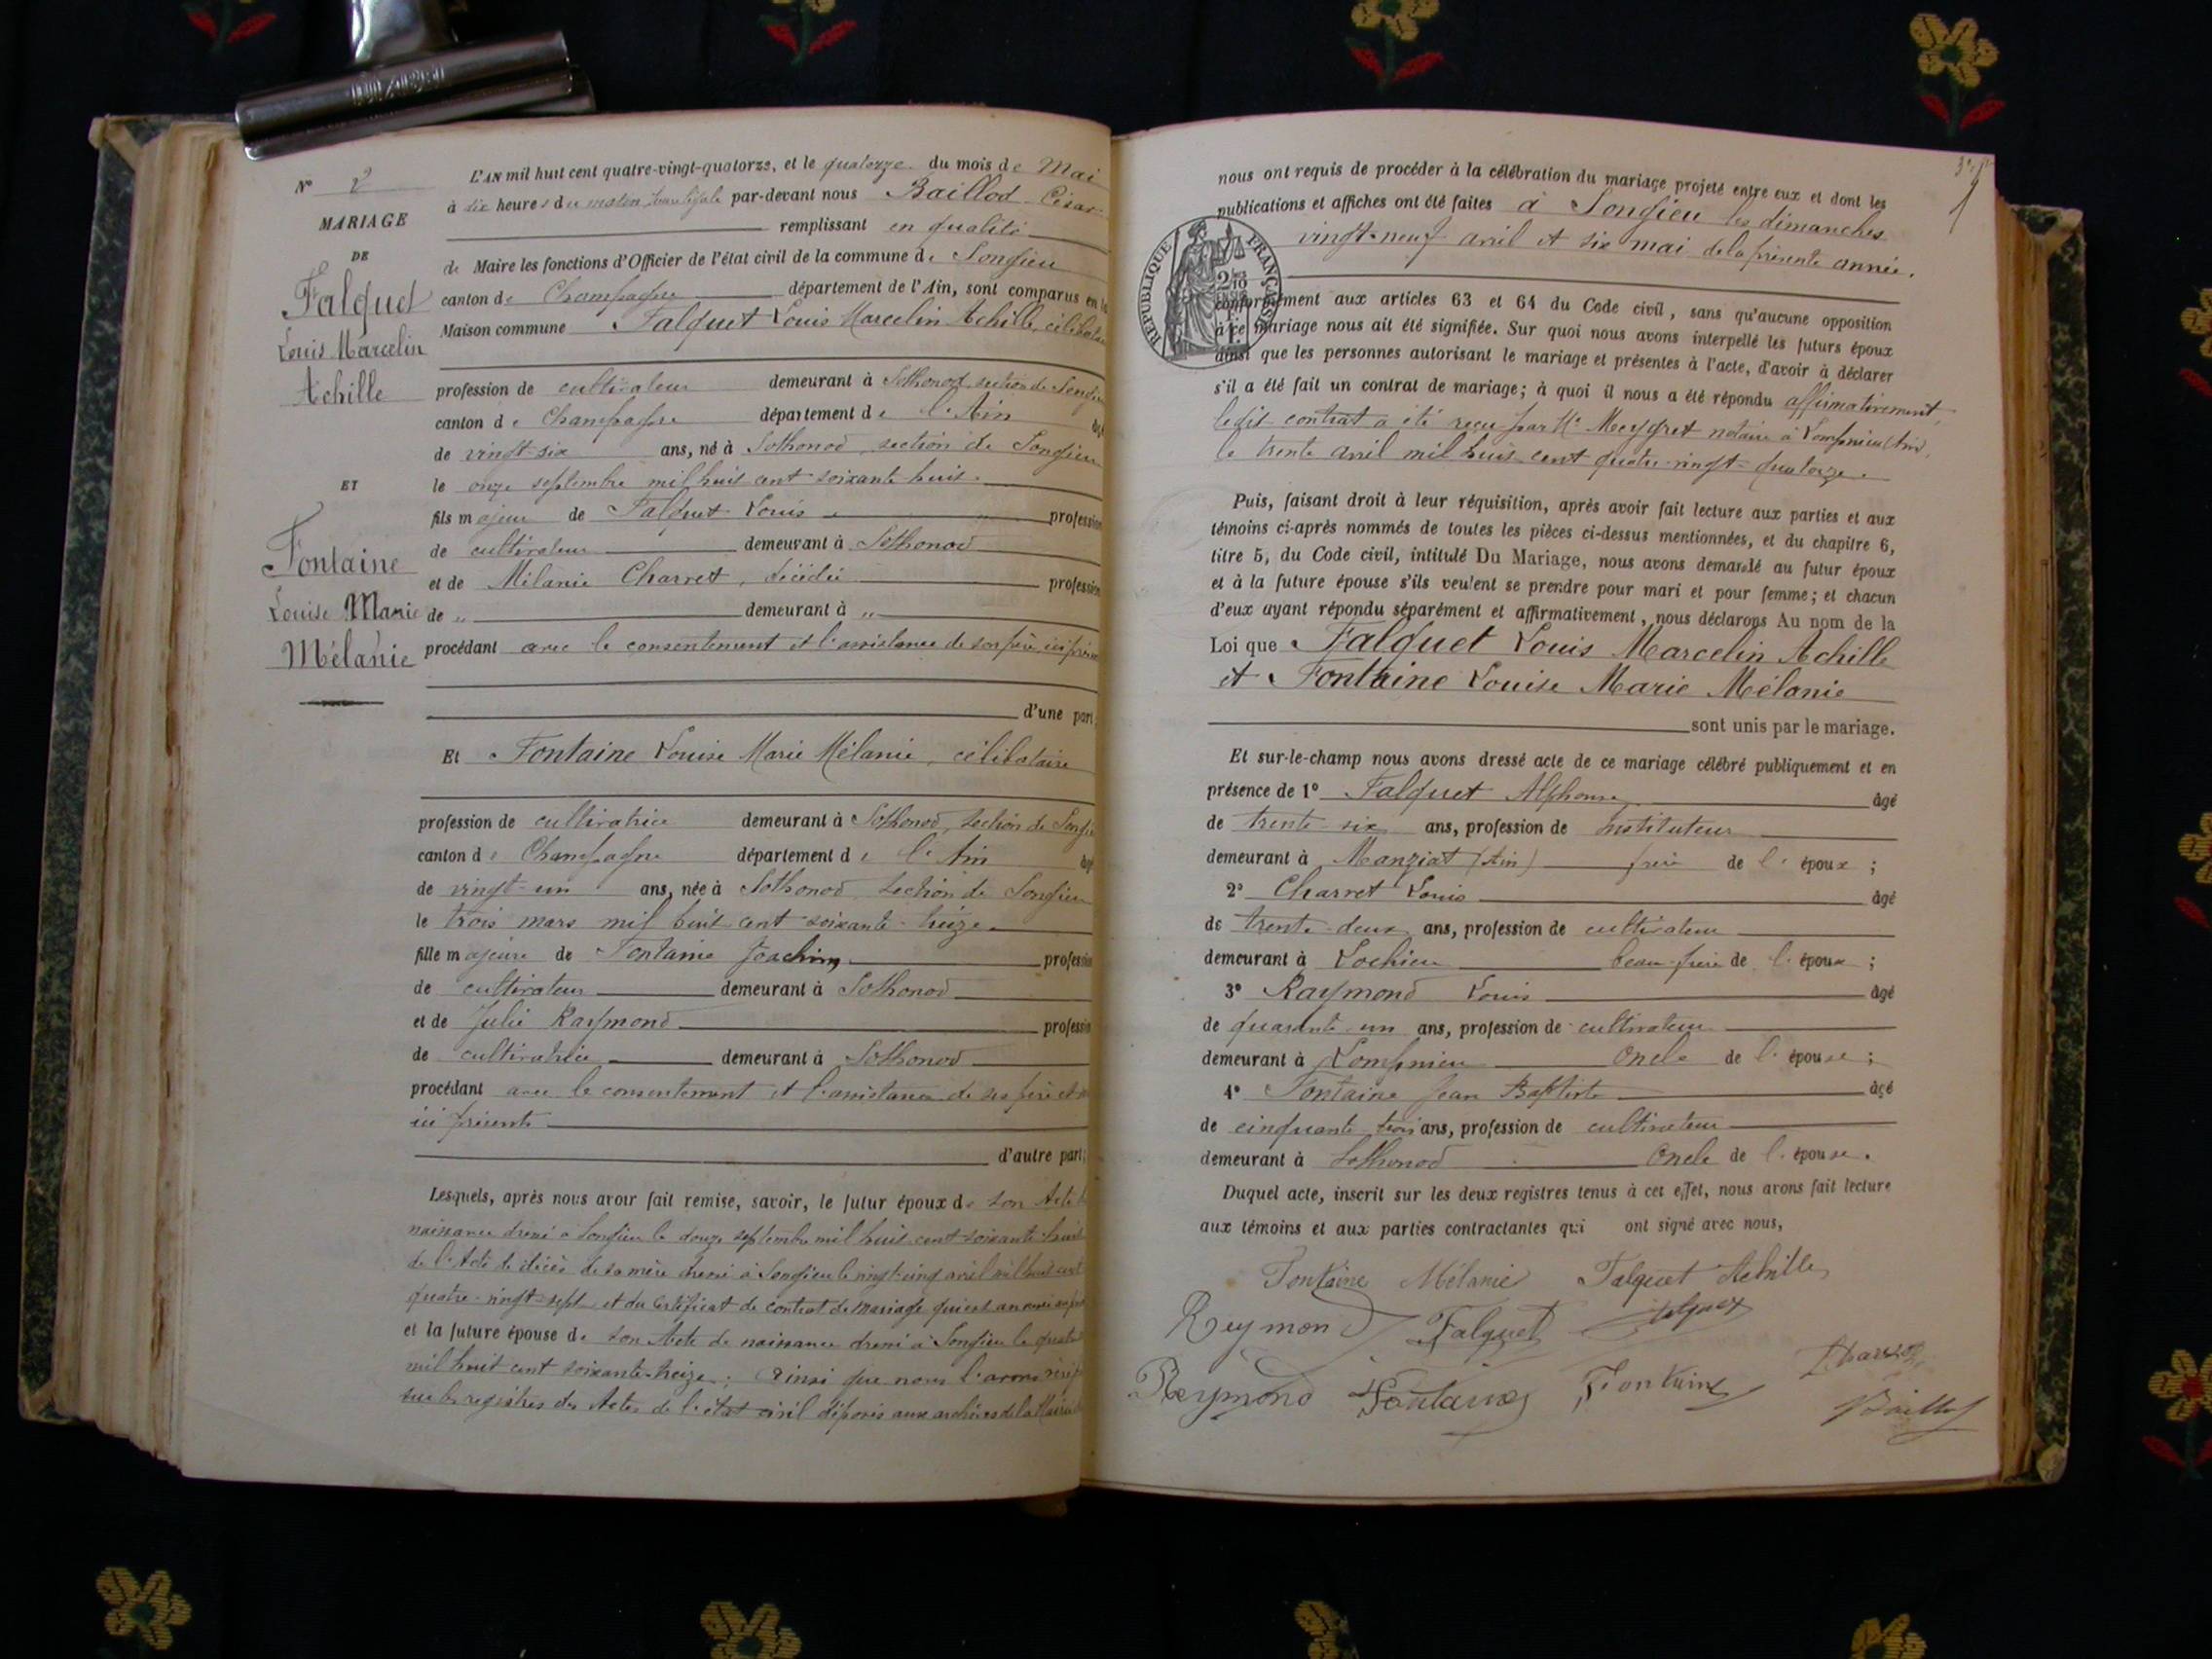 N° 2
MARIAGE
DE
Falquet
Louis Marcelin
Achille
ET
Fontaine
Louise Marie
Mélanie
L'AN mil huit cent quatre-vingt-quatorze, et le quatorze du mois de Mai
à six heures du matin, heure légale par-devant nous Baillod César
remplissant en qualité
de Maire les fonctions d'Officier de l'état civil de la commune de Songieu
canton de Champagne département de l'Ain, sont comparus en la
Maison commune Falquet Louis Marcelin Achille, célibataire
profession de cultivateur demeurant à Sothonod section de Songieu
canton de Champagne département de l'Ain âgé
de vingt-six ans, né à Sothonod, section de Songieu
le onze septembre mil huit cent soixante huit.
fils majeur de Falquet Louis profession
de cultivateur demeurant à Sothonod
et de Mélanie Charvet, décédée profession
de „ demeurant à „
procédant avec le consentement et l'assistance de son père ici présent
d'une part;
Et Fontaine Louise Marie Mélanie, célibataire
profession de cultivatrice demeurant à Sothonod, section de Songieu
canton de Champagne département de l'Ain âgée
de vingt-un ans, née à Sothonod section de Songieu
le trois mars mil huit cent soixante-treize
fille majeure de Fontaine Joachim profession
de cultivateur demeurant à Sothonod
et de Julie Raymond profession
de cultivatrice demeurant à Sothonod
procédant avec le consentement et l'assistance de ses père et
ici présents
d'autre part;
Lesquels, après nous avoir fait remise, savoir, le futur époux de son Acte de
naissance dressé à Songieu le douze septembre mil huit cent soixante-huit
de l'Acte de décès de sa mère dressé à Songieu le vingt-cinq avril mil huit cent
quatre-vingt-sept et du certificat de contrat de mariage qui est annexé
et la future épouse de son Acte de naissance dressé à Songieu le quatre
mil huit cent soixante-treize; Ainsi que nous l'avons
sur les registres des Actes de l'état civil déposés aux archives de la Mairie
nous ont requis de procéder à la célébration du mariage projeté entre eux et dont les
publications et affiches ont été faites à Songieu les dimanches
vingt-neuf avril et six mai de la présente année.
RÉPUBLIQUE FRANÇAISE
conformément aux articles 63 et 64 du Code civil, sans qu'aucune opposition
à ce mariage nous ait été signifiée. Sur quoi nous avons interpellé les futurs époux
ainsi que les personnes autorisant le mariage et présentes à l'acte, d'avoir à déclarer
s'il a été fait un contrat de mariage; à quoi il nous a été répondu affirmativement,
ledit contrat a été reçu par Me Meygret notaire à Lompnieu (Ain),
le trente avril mil huit cent quatre-vingt-quatorze.
Puis, faisant droit à leur réquisition, après avoir fait lecture aux parties et aux
témoins ci-après nommés de toutes les pièces ci-dessus mentionnées, et du chapitre 6,
titre 5, du Code civil, intitulé Du Mariage, nous avons demandé au futur époux
et à la future épouse s'ils veulent se prendre pour mari et pour femme; et chacun
d'eux ayant répondu séparément et affirmativement, nous déclarons Au nom de la
Loi que Falquet Louis Marcelin Achille
et Fontaine Louise Marie Mélanie
sont unis par le mariage.
Et sur-le-champ nous avons dressé acte de ce mariage célébré publiquement et en
présence de 1° Falquet Alphonse âgé
de trente-six ans, profession de Instituteur
demeurant à Manziat (Ain) frère de l'époux;
2° Charvet Louis âgé
de trente-deux ans, profession de cultivateur
demeurant à Lochieu beau-frère de l'époux;
3° Raymond Louis âgé
de quarante-un ans, profession de cultivateur
demeurant à Lompnieu Oncle de l'épouse;
4° Fontaine Jean Baptiste âgé
de cinquante-trois ans, profession de cultivateur
demeurant à Sothonod Oncle de l'épouse.
Duquel acte, inscrit sur les deux registres tenus à cet effet, nous avons fait lecture
aux témoins et aux parties contractantes qui ont signé avec nous,
Fontaine Mélanie Falquet Achille
Reymond Falquet Falquet
Reymond Fontaine Fontaine Charvet
Baillod